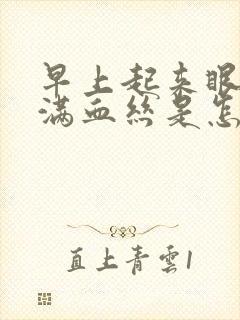 早上起来眼
满血丝是怎
直上青雲1